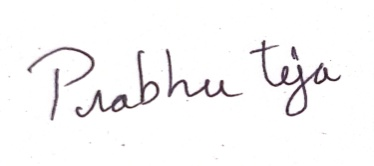 Prabhu teja